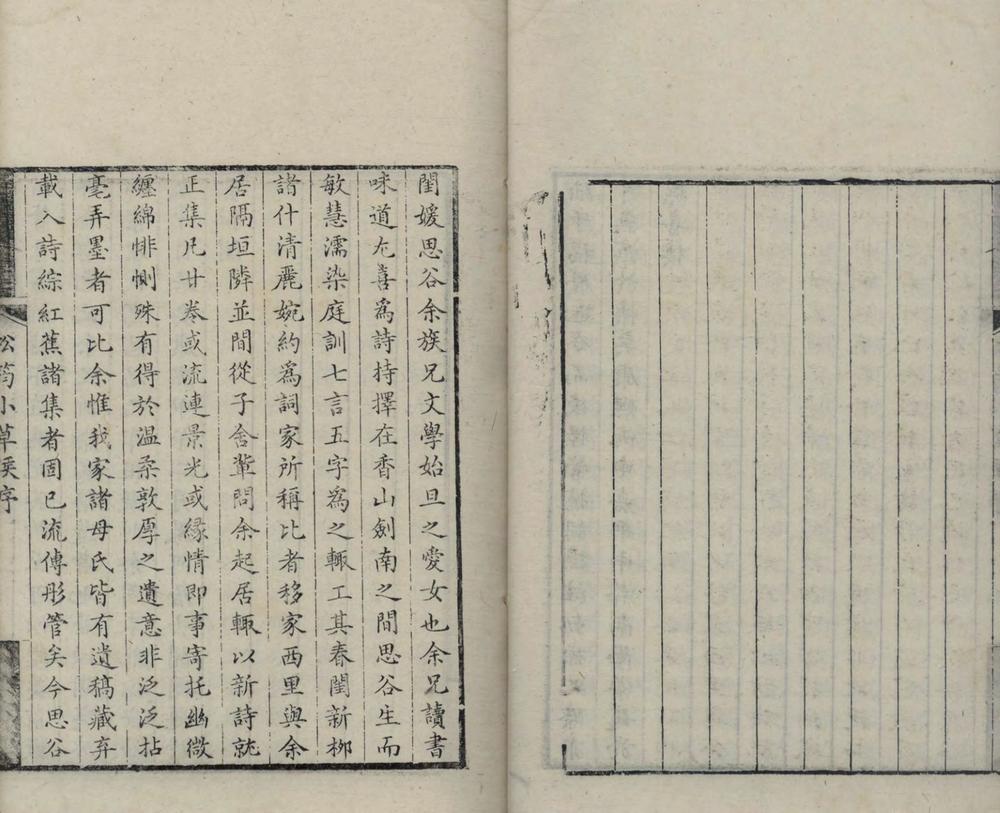 閨媛思谷余族兄文學始旦之愛女也余兄讀書
味道尤喜爲詩持擇在香山劍南之間思谷生而
敏慧濡染庭訓七言五字爲之輙工其春閨新柳
諸什清麗婉約爲詞家所稱比者移家西里與余
居隔垣隣並間從子舍輩問余起居輙以新詩就
正集凡廿卷或流連景光或緣情即事寄托幽微
纏綿悱惻殊有得於温柔敦厚之遺意非泛泛拈
毫弄墨者可比余惟我家諸母氏皆有遺稿藏弆
載入詩綜紅蕉諸集者固已流傳彤管矣今思谷
松筠小草 序